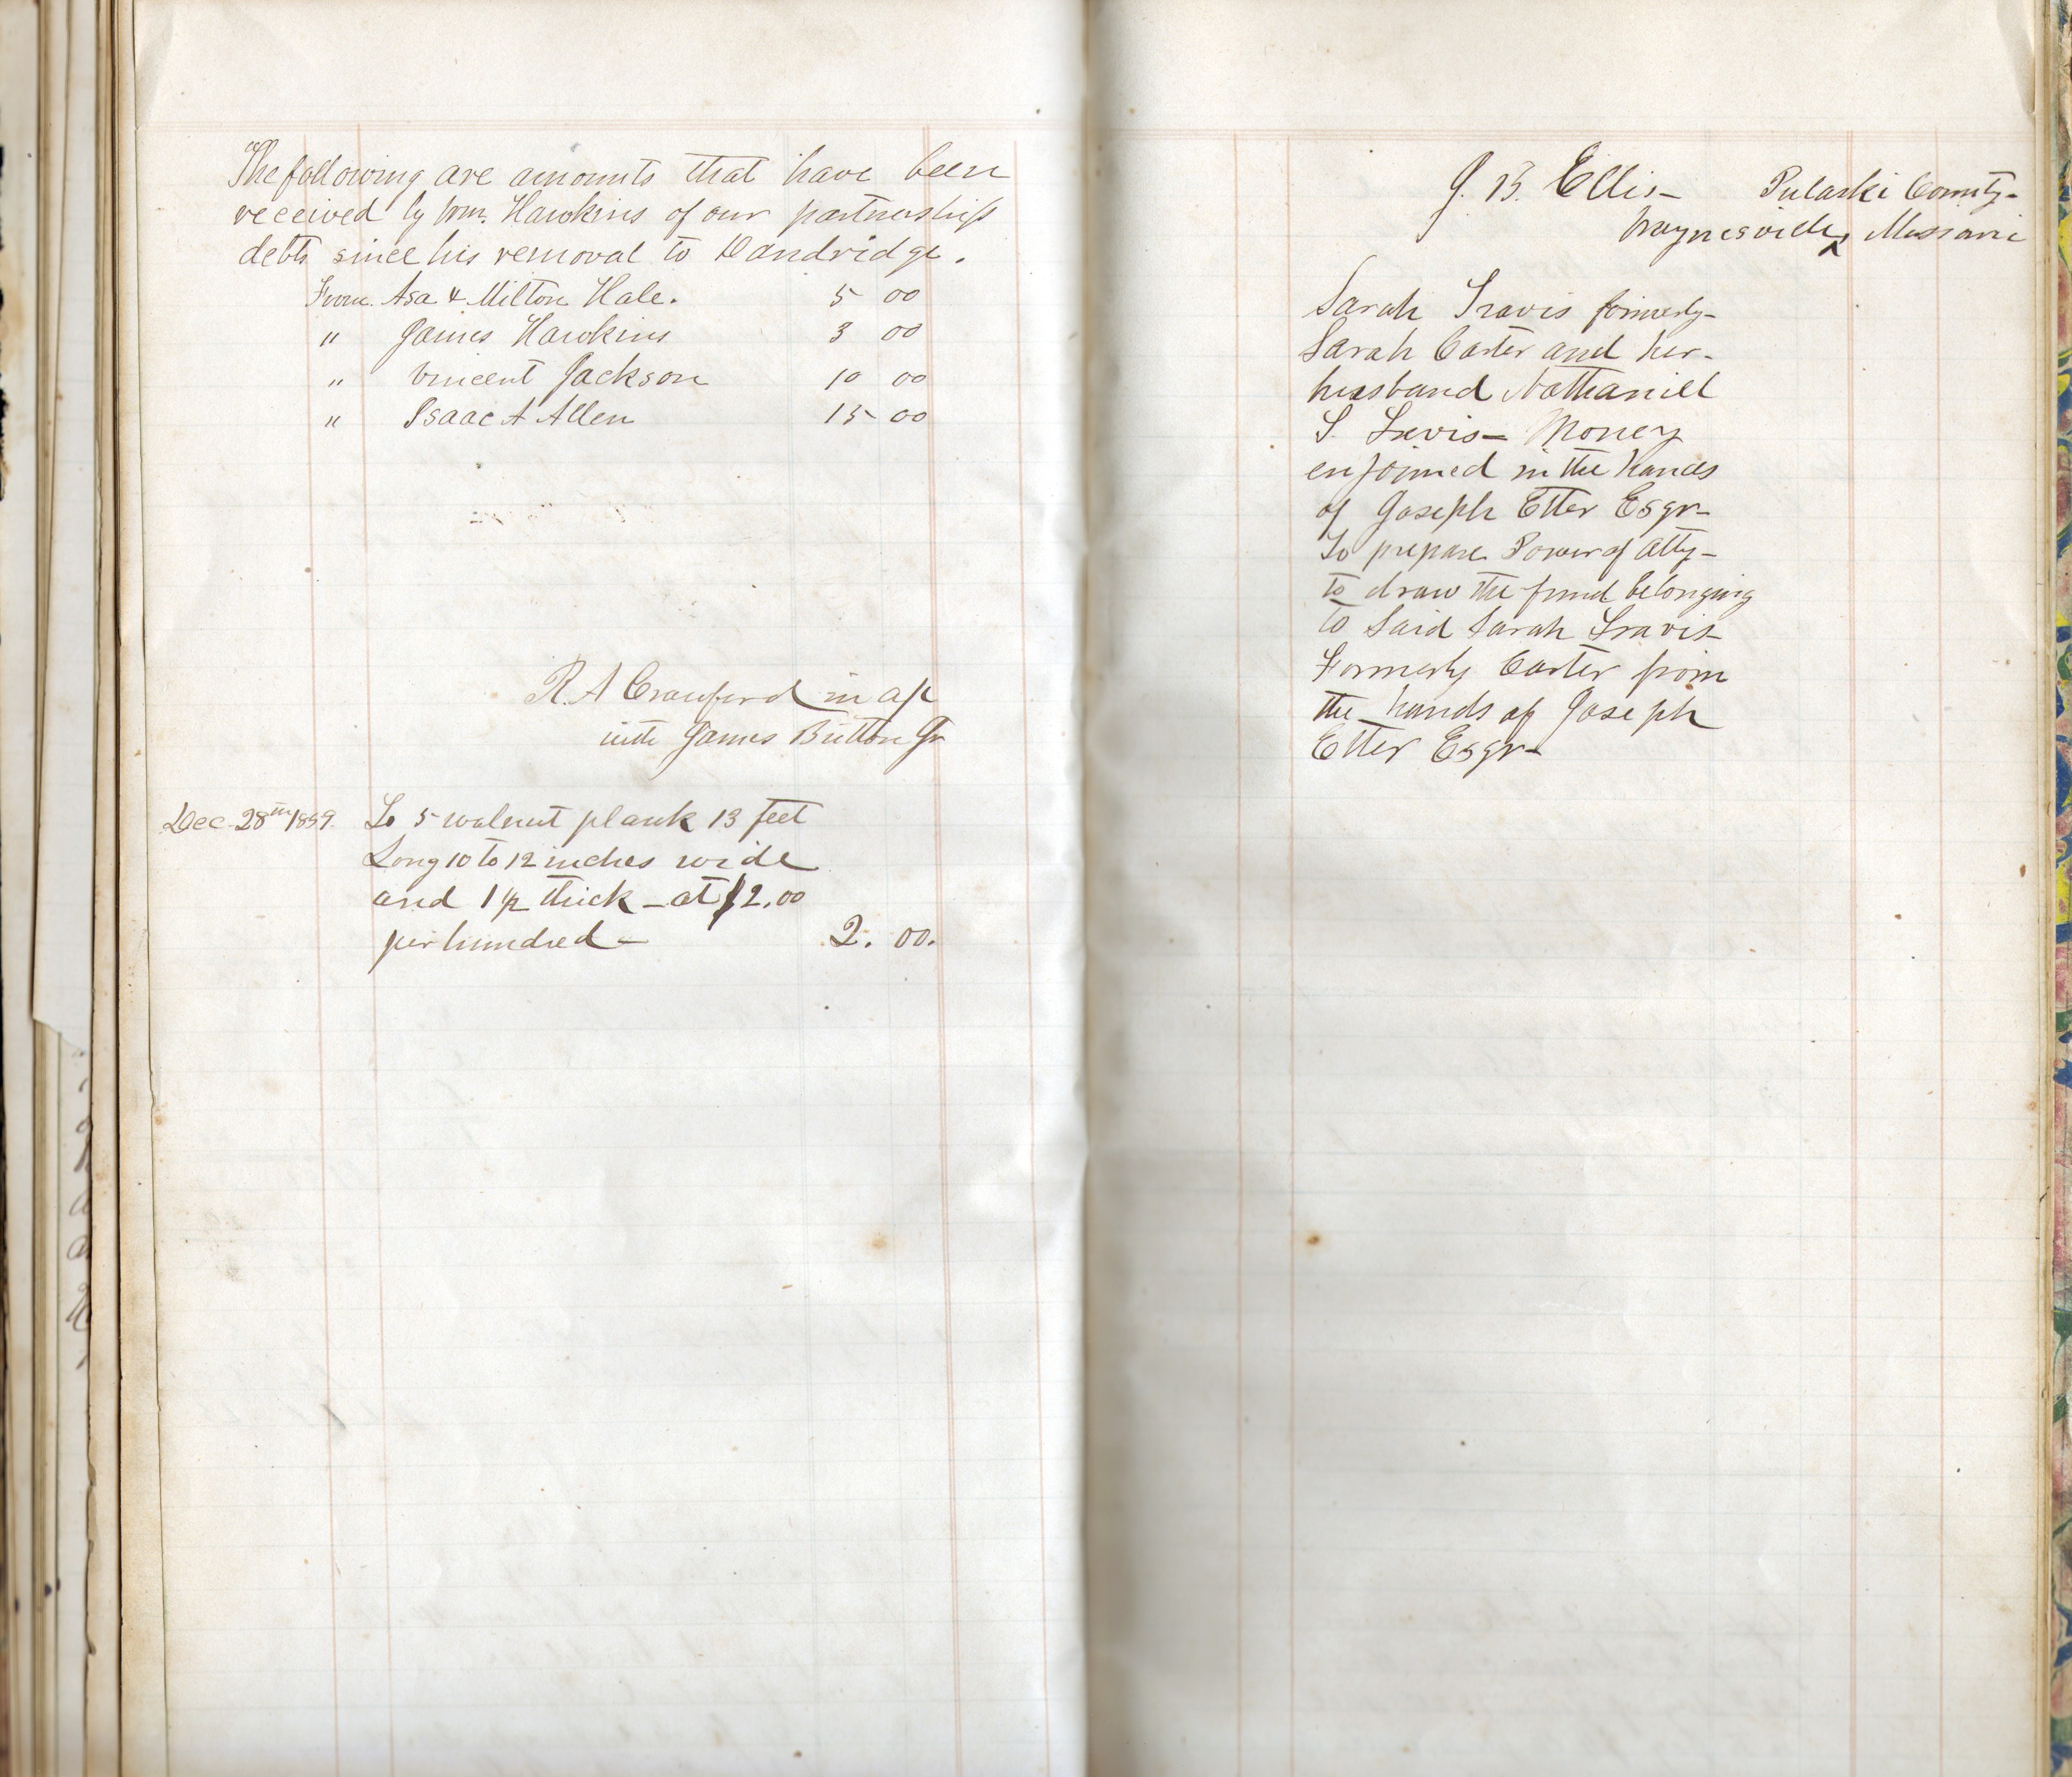 The following are amounts that have been
received by Wm. Hawkins of our partnership
debts since his removal to Dandridge.
From Asa & Milton Hale. 5 00
" James Hawkins 3 00
" Vincent Jackson 10 00
" Isaac A Allen 15 00
R. A Crawford in a/c
with James Britton Jr
Dec 28th 1859. To 5 walnut plank 13 feet
Long 10 to 12 inches wide
and 1 1/2 thick - at $2.00
per hundred - 2. 00.
J. B. Ellis - Pulaski County -
Waynesville, ^ Missouri
Sarah Travis formerly -
Sarah Carter and her -
husband Nathaniel
S. Travis - Money
enjoined in the hands
of Joseph Etter Esqr -
To prepare Power of Atty -
to draw the fund belonging
to Said Sarah Travis
Formerly Carter from
the hands of Joseph
Etter Esqr -